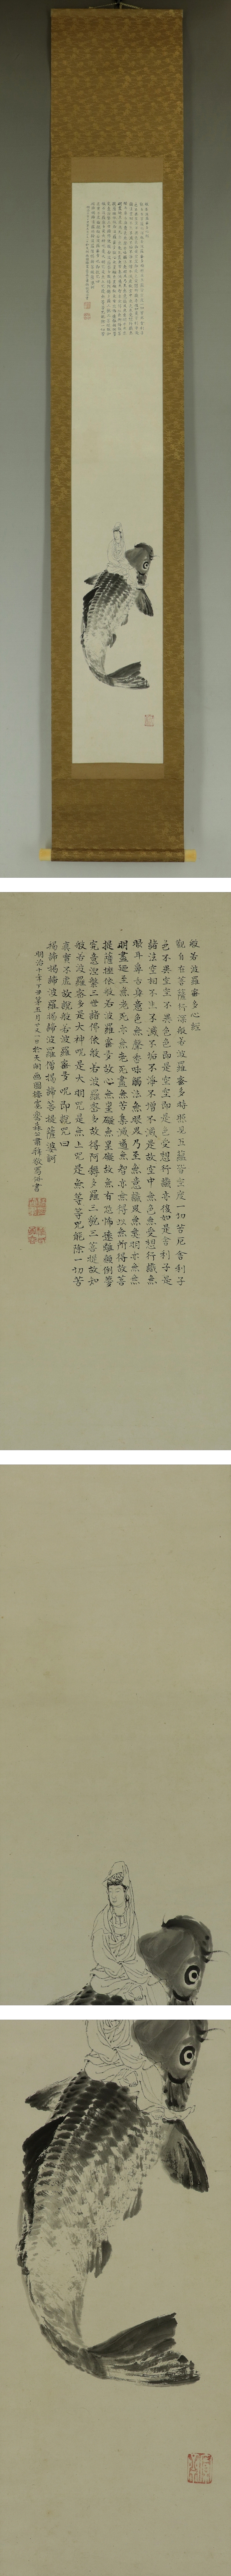 般若波羅蜜多心經
觀自在菩薩行深般若波羅蜜多時照見五蘊皆空度一切苦厄舍利子
色不異空空不異色色即是空空即是色受想行識亦復如是舍利子是
諸法空相不生不滅不垢不淨不增不減是故空中無色無受想行識無
眼耳鼻舌身意無色聲香味觸法無眼界乃至無意識界無無明亦無無
明盡乃至無老死亦無老死盡無苦集滅道無智亦無得以無所得故菩
提薩埵依般若波羅蜜多故心無罣礙無罣礙故無有恐怖遠離顛倒夢想
究竟涅槃三世諸佛依般若波羅蜜多故得阿耨多羅三藐三菩提故知
般若波羅蜜多是大神咒是大明咒是無上咒是無等等咒能除一切苦
真實不虛故說般若波羅蜜多咒即說咒曰
揭諦揭諦波羅揭諦波羅僧揭諦菩提薩婆訶
明治十年丁丑第五月廿一日於天